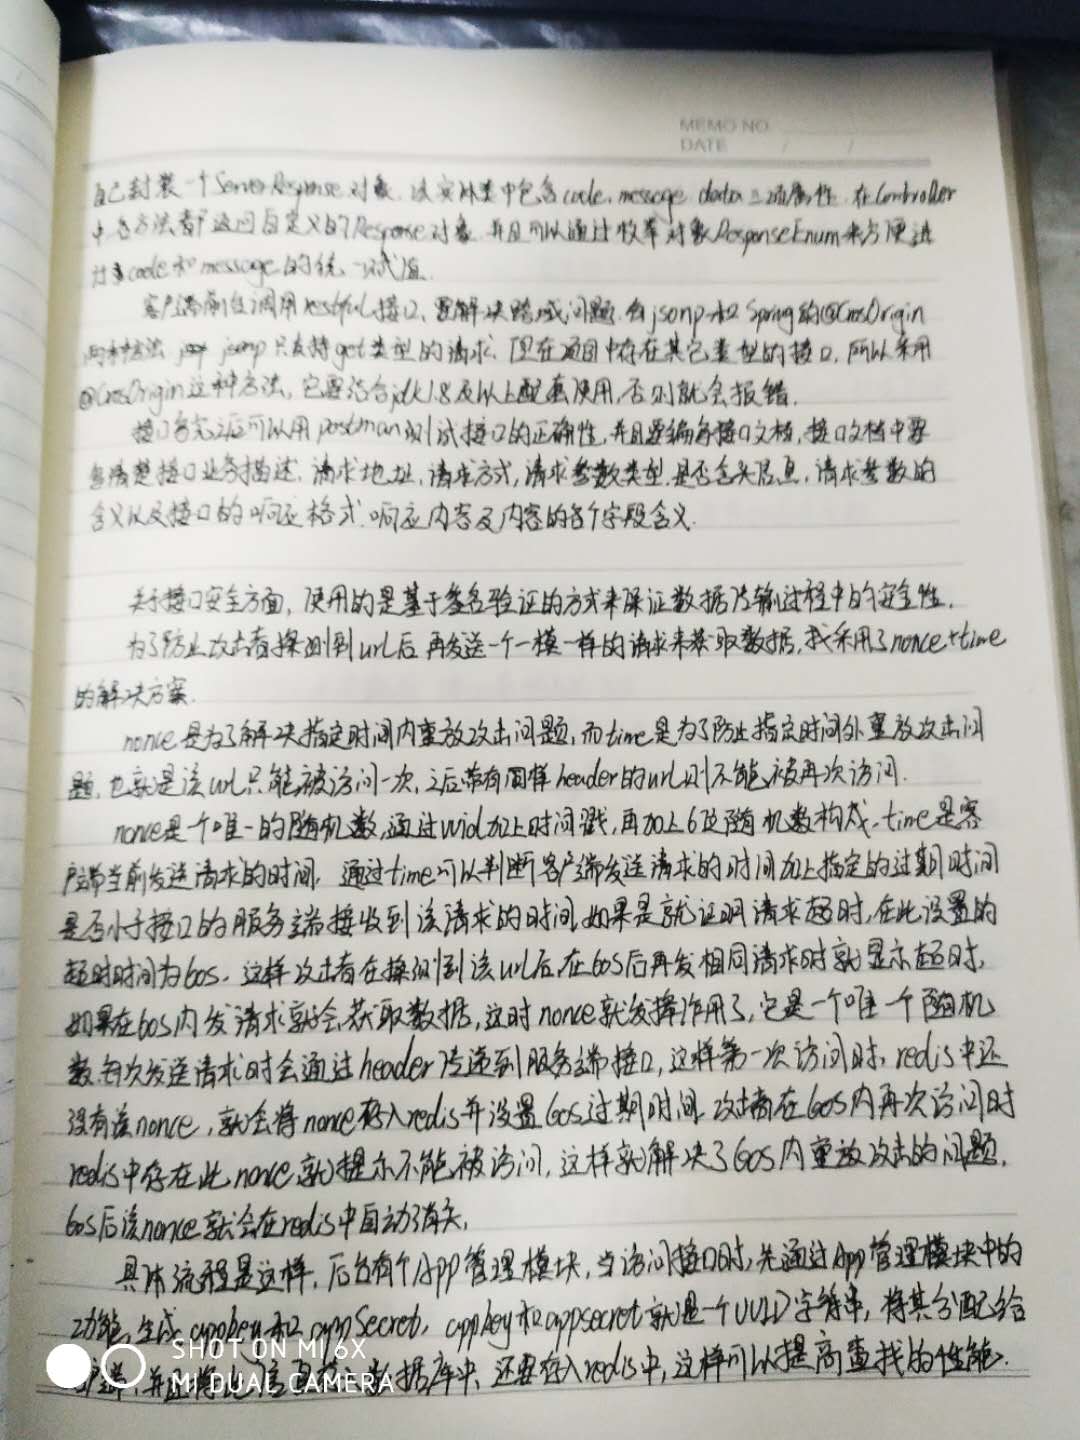 MEMO NO.
DATE / /
自己封装一个ServerResponse对象,该实体类中包含code,message,data三项属性.在Controller
中各方法都返回自定义的Response对象,并且可以通过枚举对象ResponseEnum来方便进
行code和message的统一赋值.
客户端前台调用restful接口,要解决跨域问题,有jsonp和Spring的@CrosOrigin
两种方法,jsonp只支持get类型的请求,但在项目中存在其它类型的接口,所以采用
@CrosOrigin这种方法,它要结合jdk1.8及以上配套使用,否则就会报错.
接口写完之后可以用postman测试接口的正确性,并且要编写接口文档,接口文档中要
写清楚接口业务描述,请求地址,请求方式,请求参数类型,是否含头信息,请求参数的
含义以及接口的响应格式.响应内容及内容的各个字段含义.
关于接口安全方面,使用的是基于签名验证的方式来保证数据传输过程中的安全性.
为了防止攻击者探测到url后再发送一个一模一样的请求来获取数据,我采用了nonce+time
的解决方案.
nonce是为了解决指定时间内重放攻击问题,而time是为了防止指定时间外重放攻击问
题,也就是该url只能被访问一次,之后带有同样header的url则不能被再次访问.
nonce是一个唯一的随机数,通过uuid加上时间戳,再加上6位随机数构成.time是客
户端当前发送请求的时间,通过time可以判断客户端发送请求的时间加上指定的过期时间
是否小于接口的服务端接收到该请求的时间,如果是就证明请求超时,在此设置的
超时时间为60s.这样攻击者在探测到该url后在60s后再发相同请求时就显示超时,
如果在60s内发请求就会获取数据,这时nonce就发挥作用了,它是一个唯一个随机
数.每次发送请求时会通过header传递到服务端接口,这样第一次访问时,redis中还
没有该nonce,就会将nonce存入redis并设置60s过期时间.攻击者在60s内再次访问时
redis中存在此nonce就提示不能被访问,这样就解决了60s内重放攻击的问题,
60s后该nonce就会在redis中自动消失,
具体流程是这样,后台有个App管理模块,当访问接口时,先通过App管理模块中的
功能,生成appkey和appSecret,appkey和appsecret就是一个UUID字符串,将其分配给
户端,并且将此信息 数据库中,还要存入redis中,这样可以提高查找的性能.
SHOT ON MI 6X
MI DUAL CAMERA